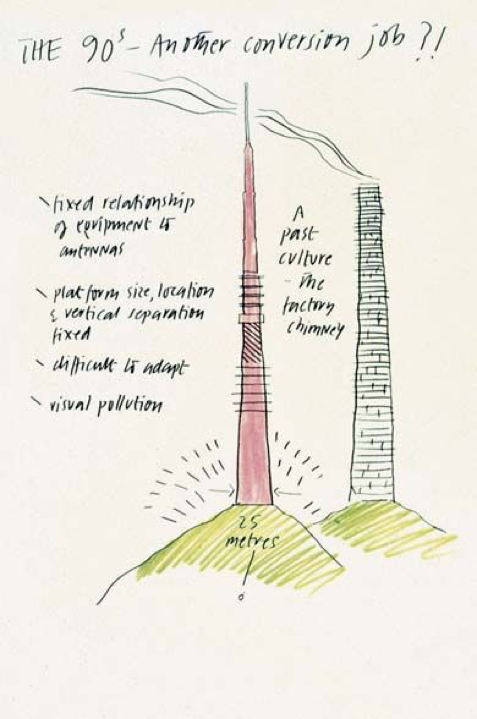 THE 90s - Another conversion job ?!
\ fixed relationship
of equipment to
antennas
\ platform size, location
& vertical separation
fixed
\ difficult to adapt
\ visual pollution
A
past
culture
- the
factory
chimney
25
metres